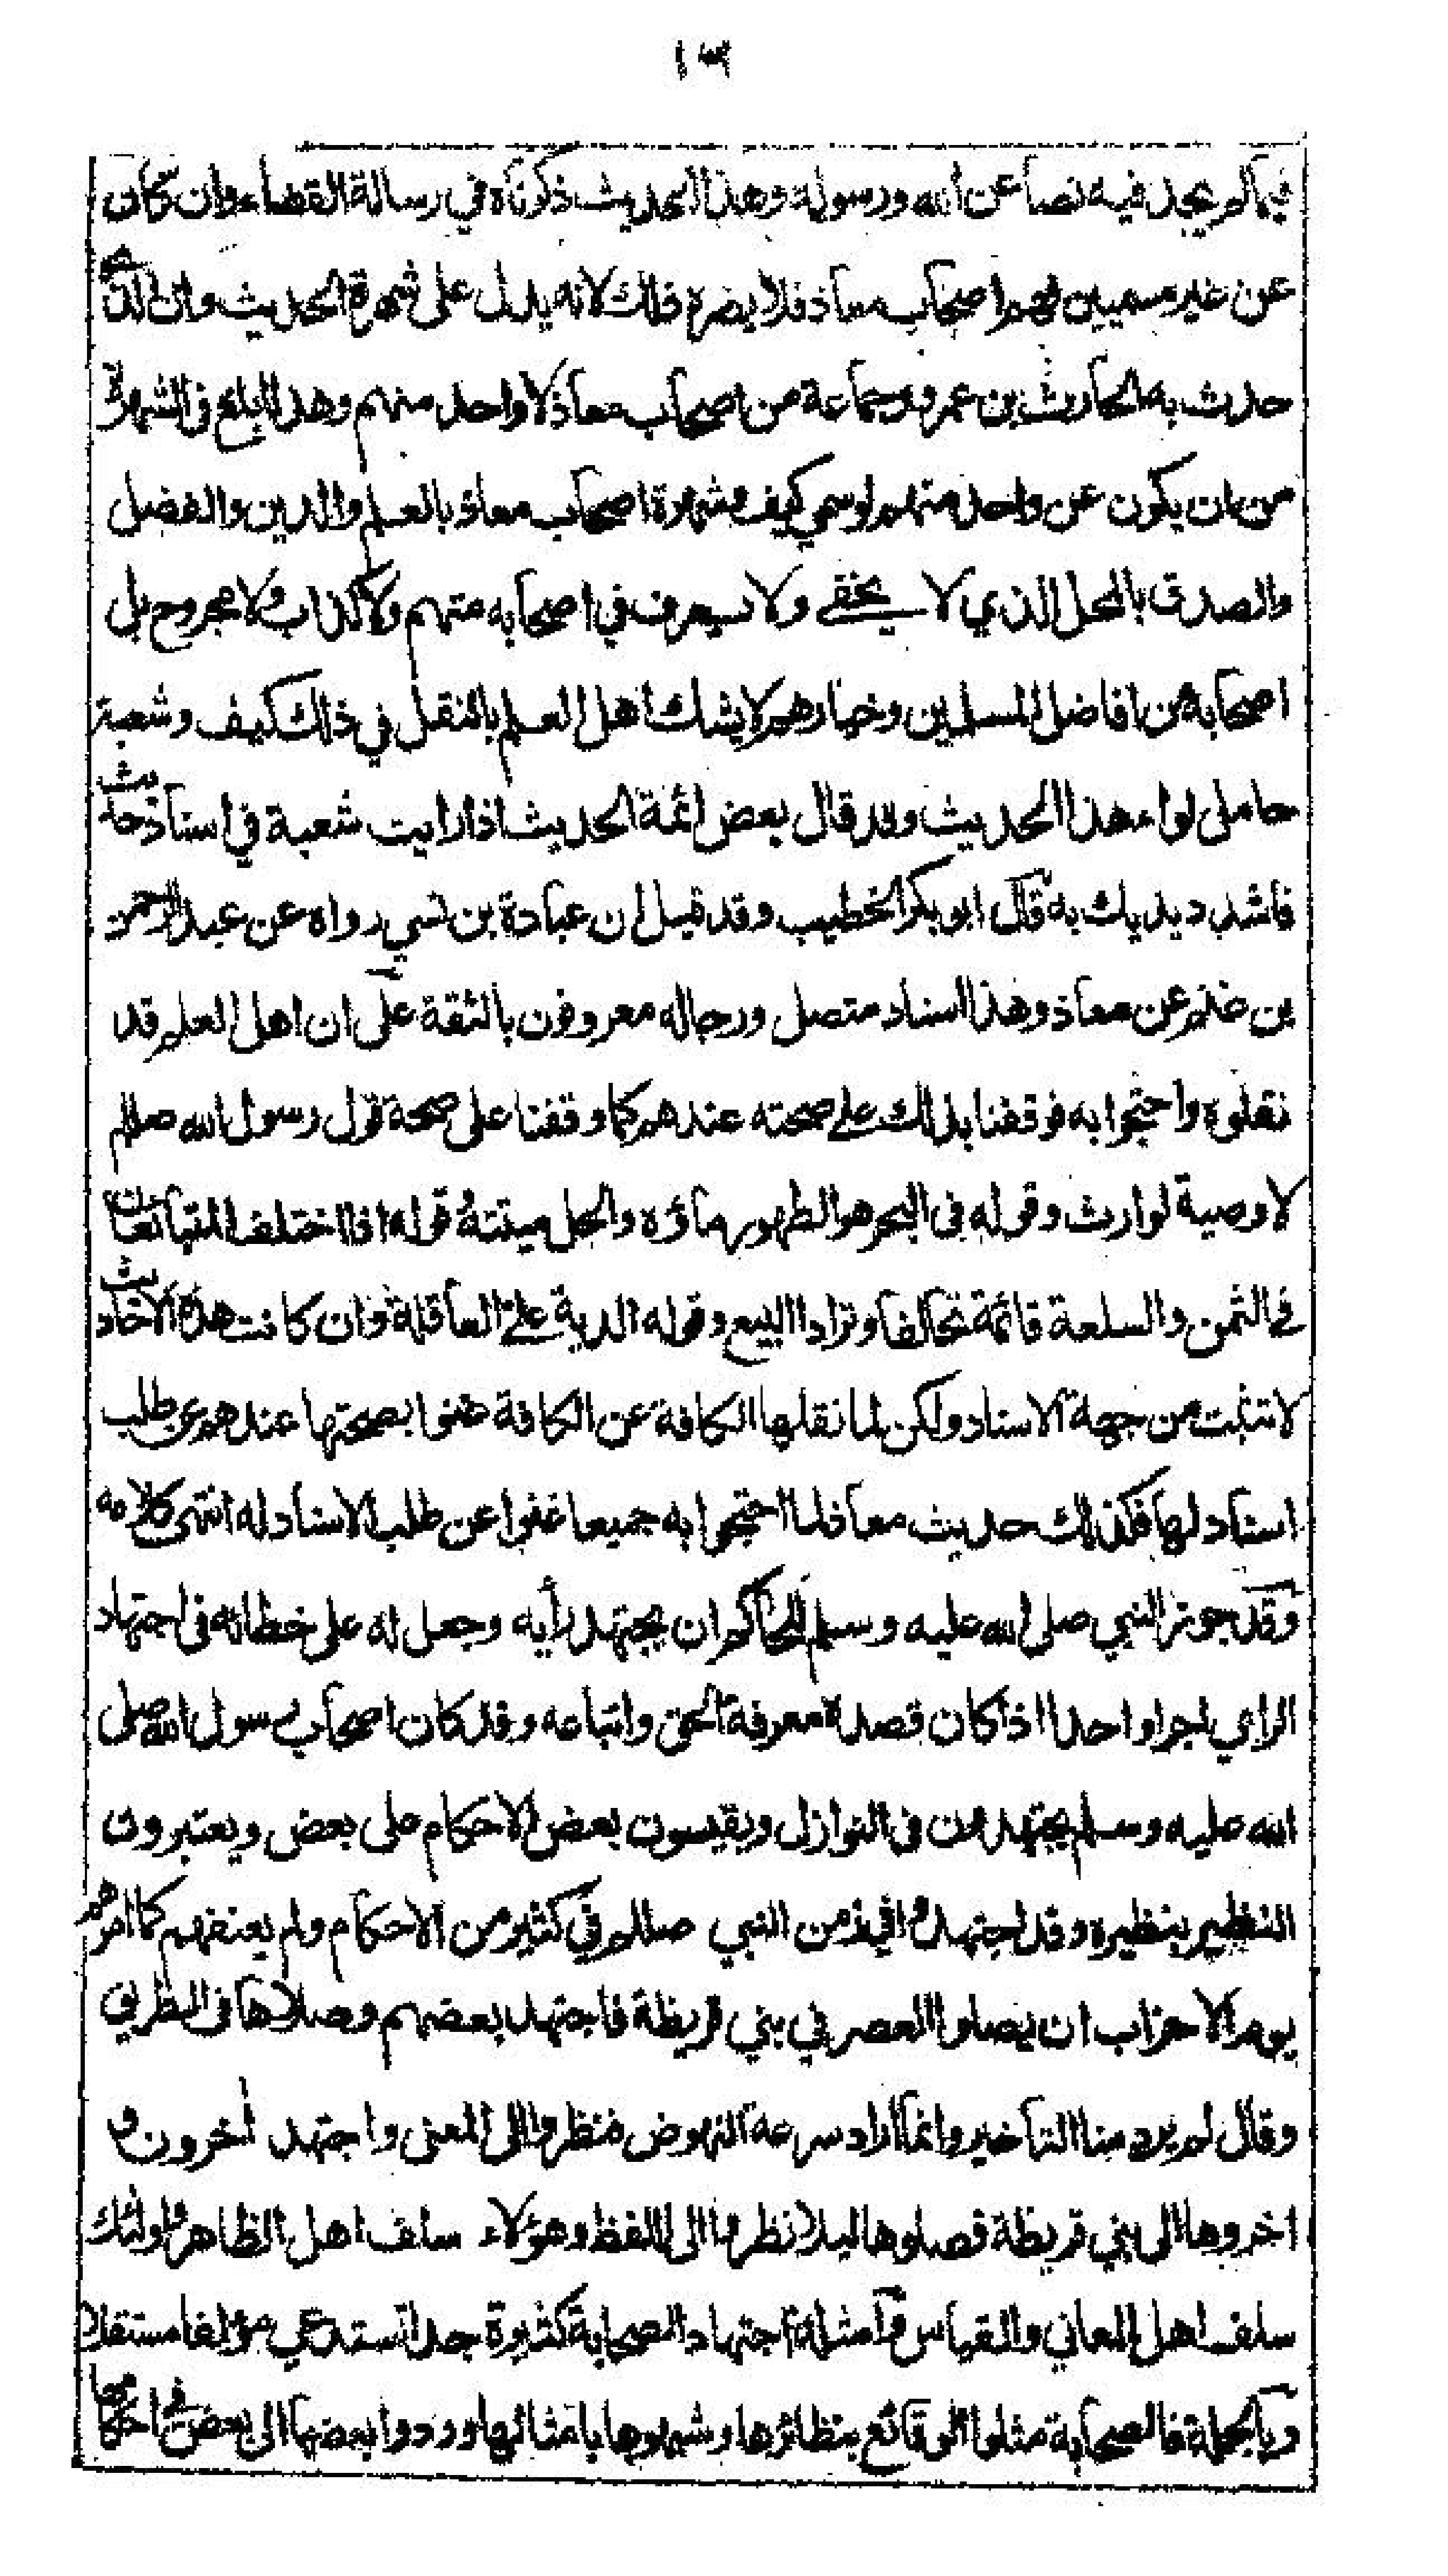 ١٣
فيما لم يجد فيه نصا عن الله ورسوله وهذا الحديث ذكرناه في رسالة القضاء وان كان
عن غير مسميين فهم اصحاب معاذ فلا يضره ذلك لانه يدل على شهرة الحديث وان الذي
حدث به الحارث بن عمرو جماعة من اصحاب معاذ لا واحد منهم وهذا ابلغ في الشهرة
من ان يكون عن واحد منهم لو سمي كيف وشهرة اصحاب معاذ بالعلم والدين والفضل
والصدق بالمحل الذي لا يخفى ولا يعرف في اصحابه متهم ولا كذاب ولا مجروح بل
اصحابه من افاضل المسلمين وخيارهم لا يشك اهل العلم بالنقل في ذلك كيف وشعبة
حامل لواء هذا الحديث وقد قال بعض ائمة الحديث اذا رايت شعبة في اسناد حديث
فاشدد يديك به قال ابو بكر الخطيب وقد قيل ان عبادة بن نسي رواه عن عبد الرحمن
بن غنم عن معاذ وهذا اسناد متصل ورجاله معروفون بالثقة على ان اهل العلم قد
نقلوه واحتجوا به فوقفنا بذلك على صحته عندهم كما وقفنا على صحة قول رسول الله صللم
لا وصية لوارث وقوله في البحر هو الطهور ماؤه والحل ميتته وقوله اذا اختلف المتبائعان
في الثمن والسلعة قائمة تحالفا وترادا البيع وقوله الدية على العاقلة وان كانت هذه الاحاديث
لا تثبت من جهة الاسناد ولكن لما نقلها الكافة عن الكافة غنوا بصحتها عندهم عن طلب
اسناد لها فكذلك حديث معاذ لما احتجوا به جميعا غنوا عن طلب الاسناد له انتهى كلامه
وقد جوز النبي صلى الله عليه وسلم للحاكم ان يجتهد رأيه وجعل له على خطائه في اجتهاد
الراي اجرا واحدا اذا كان قصده معرفة الحق واتباعه وقد كان اصحاب رسول الله صلى
الله عليه وسلم يجتهدون في النوازل ويقيسون بعض الاحكام على بعض ويعتبرون
النظير بنظيره وقد اجتهدوا في زمن النبي صللم في كثير من الاحكام ولم يعنفهم كما امرهم
يوم الاحزاب ان يصلوا العصر في بني قريظة فاجتهد بعضهم وصلاها في الطريق
وقال لم يرد منا التأخير وانما اراد سرعة النهوض فنظروا الى المعنى واجتهد أخرون و
اخروها الى بني قريظة فصلوها ليلا نظروا الى اللفظ وهؤلاء سلف اهل الظاهر واولئك
سلف اهل المعاني والقياس وأمثلة اجتهاد الصحابة كثيرة جدا تستدعي مؤلفا مستقلا
وبالجملة فالصحابة مثلوا الوقائع بنظائرها وشبهوها بامثالها وردوا بعضها الى بعض في احكامها